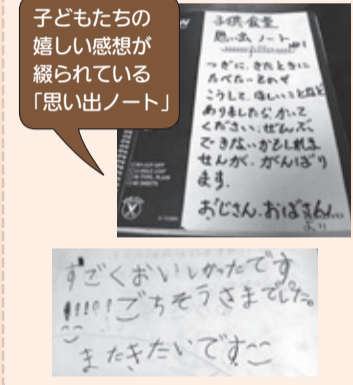 子どもたちの
嬉しい感想が
綴られている
「思い出ノート」
子供食堂
思い出ノート
つぎに、きたときに
たべたいものや
こうして、ほしいことなど
ありましたらかいて
ください。ぜんぶ、
できないかもしれま
せんが、がんばり
ます。
おじさん、おばさん
より
すごくおいしかったです
!!!!!ごちそうさまでした。
またきたいです